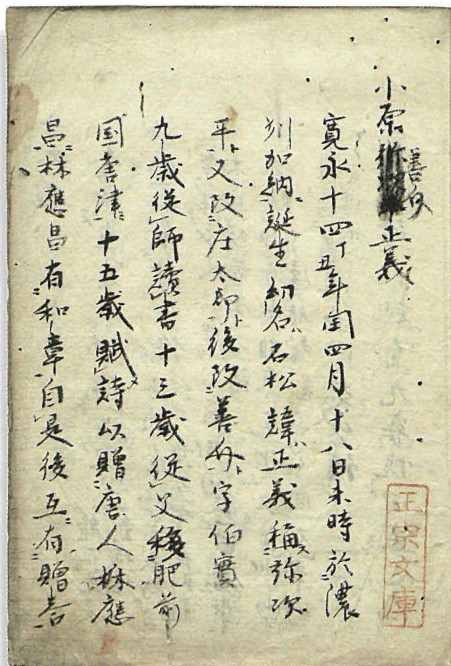 小原善助正義
寛永十四丁丑年閏四月十八日未時於濃
州加納誕生幼名石松諱正義稱弥次
平又改庄太郎後改善助字伯實
九歳従師讀書十三歳従父移肥前
國唐津十五歳賦詩以贈唐人林應
昌林應昌有和章自是後互有贈答
正宗文庫